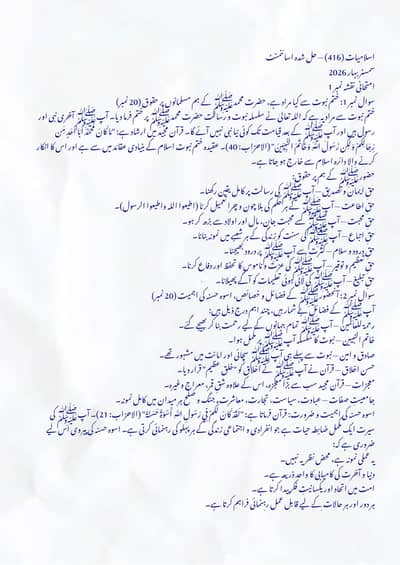 اسلامیات (416) – حل شدہ اسائنمنٹ
سمسٹر بہار 2026
امتحانی نقشہ نمبر 1
سوال نمبر 1: ختم نبوت سے کیا مراد ہے، حضرت محمد ﷺ کے ہم مسلمانوں پر حقوق (20 نمبر)
ختم نبوت سے مراد یہ ہے کہ اللہ تعالیٰ نے سلسلہ نبوت و رسالت حضرت محمد ﷺ پر ختم فرما دیا۔ آپ ﷺ آخری نبی اور
رسول ہیں اور آپ ﷺ کے بعد قیامت تک کوئی نیا نبی نہیں آئے گا۔ قرآن مجید میں ارشاد ہے: "مَا كَانَ مُحَمَّدٌ أَبَا أَحَدٍ مِّن
رِّجَالِكُمْ وَلَٰكِن رَّسُولَ اللَّهِ وَخَاتَمَ النَّبِيِّينَ" (الاحزاب: 40)۔ عقیدہ ختم نبوت اسلام کے بنیادی عقائد میں سے ہے اور اس کا انکار
کرنے والا دائرہ اسلام سے خارج ہو جاتا ہے۔
حضور ﷺ کے ہم پر حقوق:
حق ایمان و تصدیق – آپ ﷺ کی رسالت پر کامل یقین رکھنا۔
حق اطاعت – آپ ﷺ کے ہر حکم کی بلا چون و چرا تعمیل کرنا (اطیعوا اللہ واطیعوا الرسول)۔
حق محبت – آپ ﷺ سے محبت جان، مال اور اولاد سے بڑھ کر ہو۔
حق اتباع – آپ ﷺ کی سنت کو زندگی کے ہر شعبے میں نمونہ بنانا۔
حق درود و سلام – کثرت سے آپ ﷺ پر درود بھیجنا۔
حق تعظیم و توقیر – آپ ﷺ کی عزت و ناموس کا تحفظ اور دفاع کرنا۔
حق تبلیغ – آپ ﷺ کی لائی ہوئی تعلیمات کو آگے پھیلانا۔
سوال نمبر 2: آنحضور ﷺ کے فضائل و خصائص، اسوہ حسنہ کی اہمیت (20 نمبر)
آپ ﷺ کے فضائل بے شمار ہیں، چند اہم درج ذیل ہیں:
رحمۃ للعالمین – آپ ﷺ تمام جہانوں کے لیے رحمت بنا کر بھیجے گئے۔
خاتم النبیین – نبوت کا سلسلہ آپ ﷺ پر مکمل ہوا۔
صادق و امین – نبوت سے پہلے ہی آپ ﷺ سچائی اور امانت میں مشہور تھے۔
حسن اخلاق – قرآن نے آپ ﷺ کے اخلاق کو "خلق عظیم" قرار دیا۔
معجزات – قرآن مجید سب سے بڑا معجزہ، اس کے علاوہ شق قمر، معراج وغیرہ۔
جامعیت صفات – عبادت، سیاست، تجارت، معاشرت، جنگ و صلح ہر میدان میں کامل نمونہ۔
اسوہ حسنہ کی اہمیت و ضرورت: قرآن فرماتا ہے: "لَقَدْ كَانَ لَكُمْ فِي رَسُولِ اللَّهِ أُسْوَةٌ حَسَنَةٌ" (الاحزاب: 21)۔ آپ ﷺ کی
سیرت ایک مکمل ضابطہ حیات ہے جو انفرادی و اجتماعی زندگی کے ہر پہلو کی رہنمائی کرتی ہے۔ اسوہ حسنہ کی پیروی اس لیے
ضروری ہے کہ:
یہ عملی نمونہ ہے، محض نظریہ نہیں۔
دنیا و آخرت کی کامیابی کا واحد ذریعہ ہے۔
امت میں اتحاد اور یکسانیت فکر پیدا کرتا ہے۔
ہر دور اور ہر حالات کے لیے قابل عمل رہنمائی فراہم کرتا ہے۔